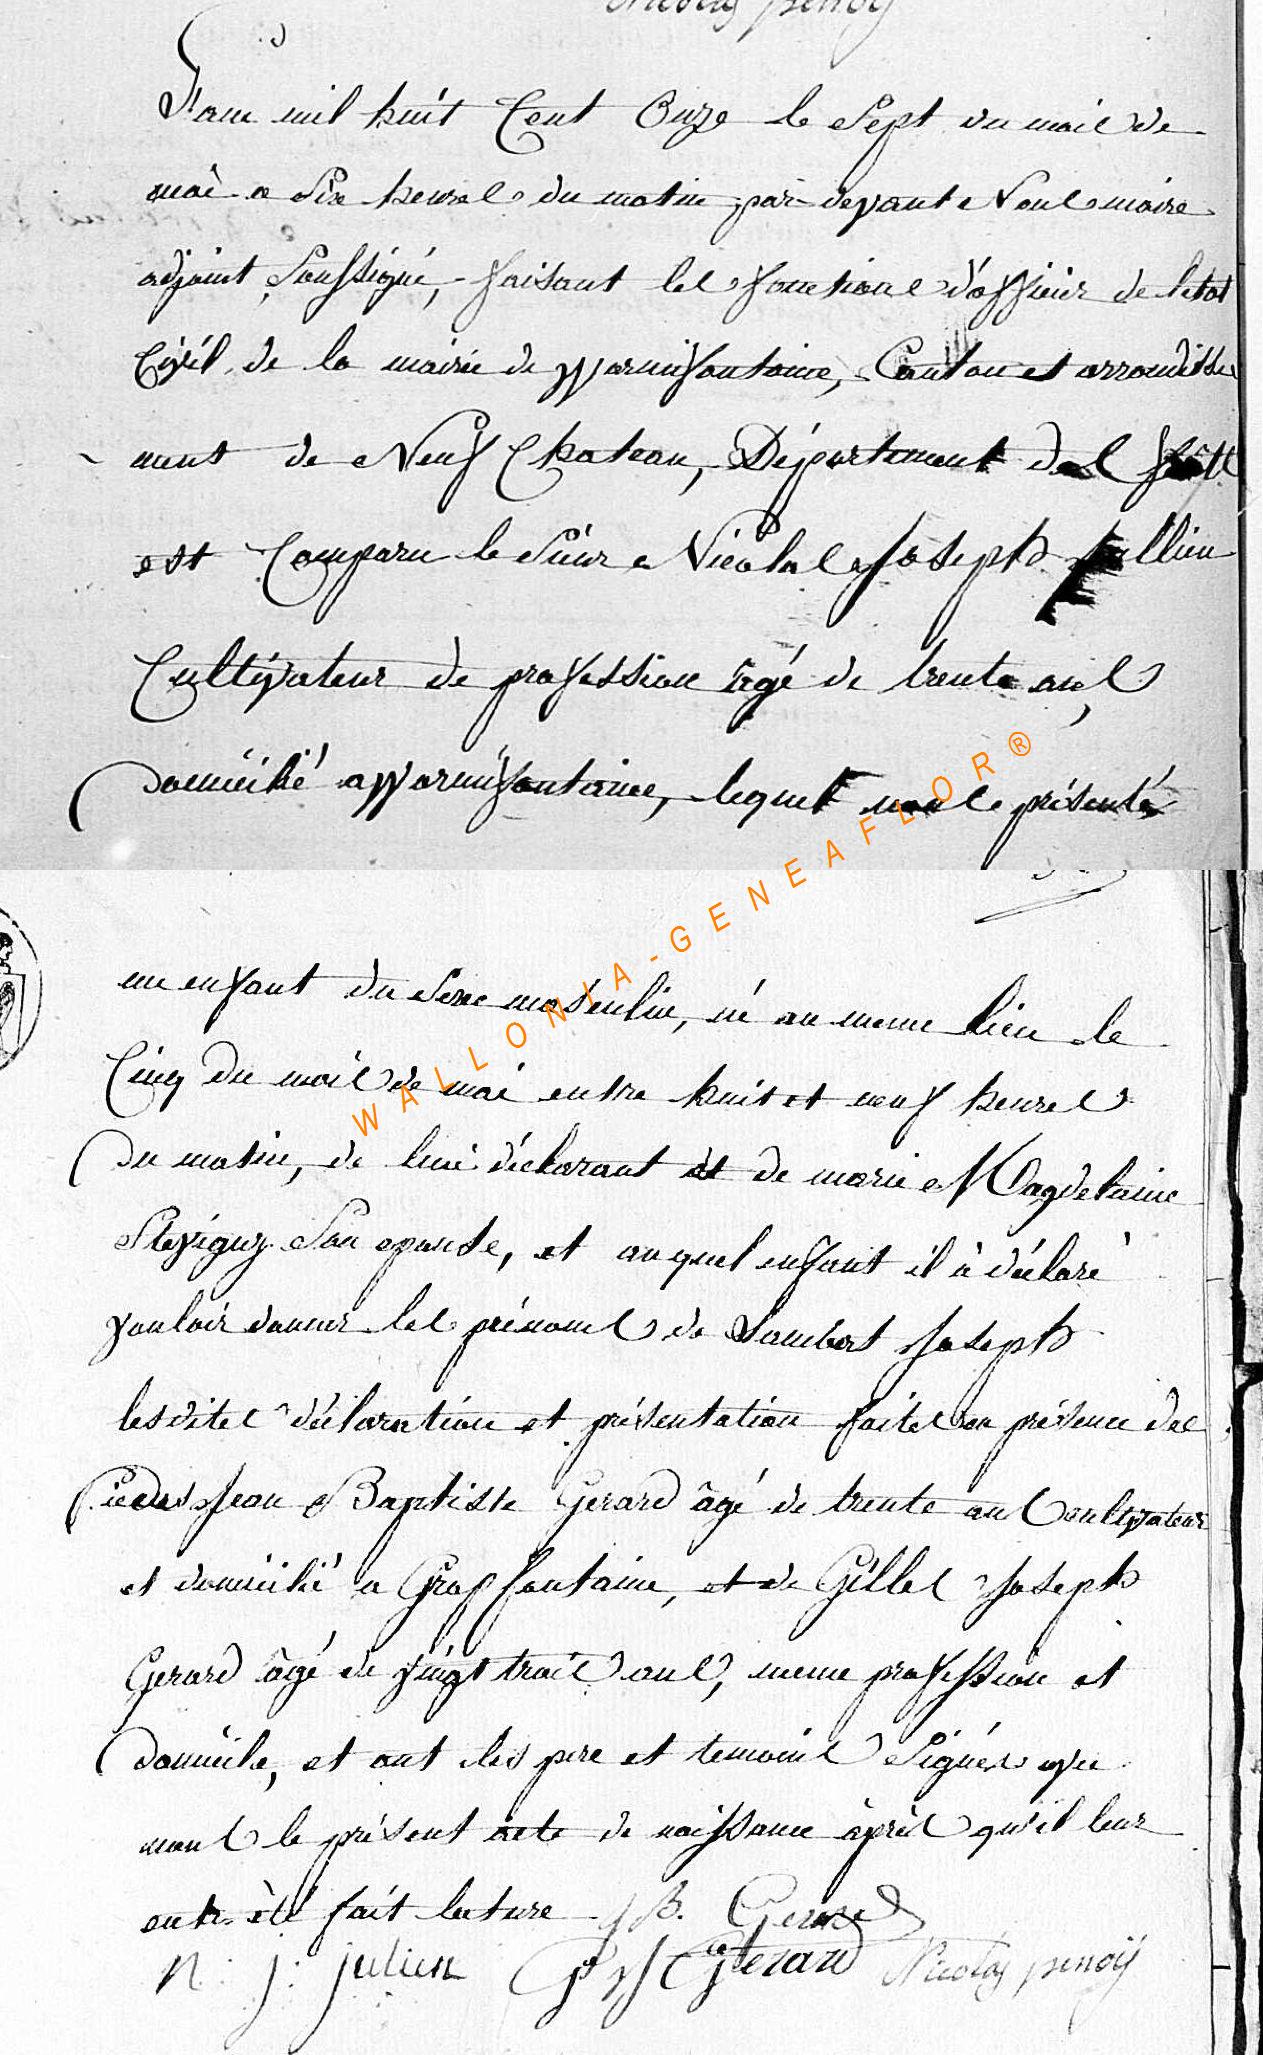 Nicolas pénoÿ
L'an mil huit Cent Onze le Sept du mois de
mai a Six heures du matin par devant Nous maire
adjoint Soussigné, faisant les fonctions d'officier de letat
Civil de la mairie de Warmifontaine, Canton et arrondisse
ment de Neuf Chateau, Département des
est Comparu le Sieur Nicolas Joseph Jullien
Cultivateur de profession âgé de trente ans,
Domicilié a Warmifontaine, lequel nous a présenté
un enfant du Sexe masculin, né au meme lieu le
Cinq Du mois de mai entre huit et neuf heures
Du matin, de lui déclarant et de marie Magdelaine
Stevigny Son epouse, et auquel enfant il à déclaré
vouloir donner les prénoms de Lambert Joseph
lesdites déclaration et présentation faites en présence des
Sieurs Jean Baptiste Gerard âgé de trente ans Cultivateur
et domicilié a Grapfontaine, et de Gilles Joseph
Gerard âgé de vingt trois ans, meme profession et
Domicile, et ont les pere et temoins Signés avec
nous le présent acte de naissance àprès qu'il leur
en a été fait lecture J B. Gerard
n: j: julien G J Gerard Nicolas pénoÿ
WALLONIA-GENEAFLOR®